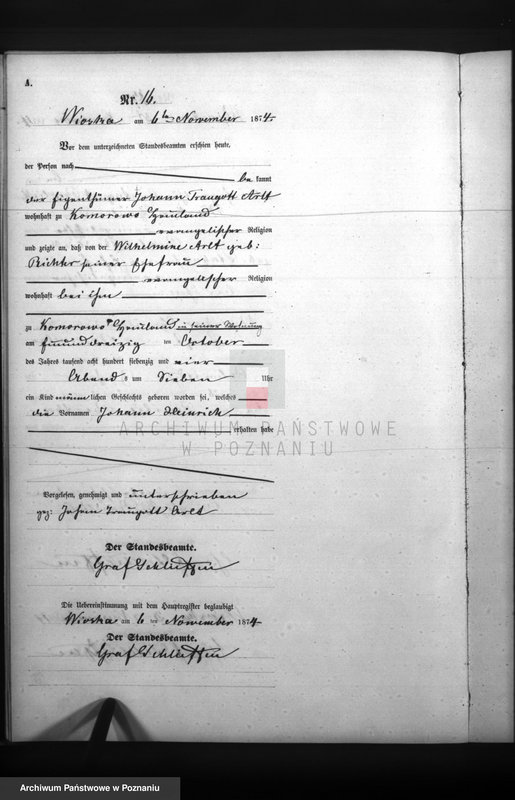 A.
Nr. 16.
Wioska am 6ten November 1874.
Vor dem unterzeichneten Standesbeamten erschien heute,
der Person nach
bekannt
der Eigenthümer Johann Traugott Arlt
wohnhaft zu Komorowo Hauland
evangelischer Religion
und zeigte an, daß von der Wilhelmine Arlt geb:
seiner Ehefrau
evangelischer Religion
wohnhaft bei ihm
zu Komorowo Hauland in seiner Wohnung
am Einunddreizig ten October
des Jahres tausend acht hundert siebenzig und vier
Abends um Sieben Uhr
ein Kind männlichen Geschlechts geboren worden sei, welches
die Vornamen Johann Heinrich
erhalten habe
ARCHIWUM PAŃSTWOWE
W POZNANIU
Vorgelesen, genehmigt und unterschrieben
gez: Johann Traugott Arlt
Der Standesbeamte.
Graf Schlieffen
Die Uebereinstimmung mit dem Hauptregister beglaubigt
Wioska am 6 ten November 1874
Der Standesbeamte.
Graf Schlieffen
Archiwum Państwowe w Poznaniu